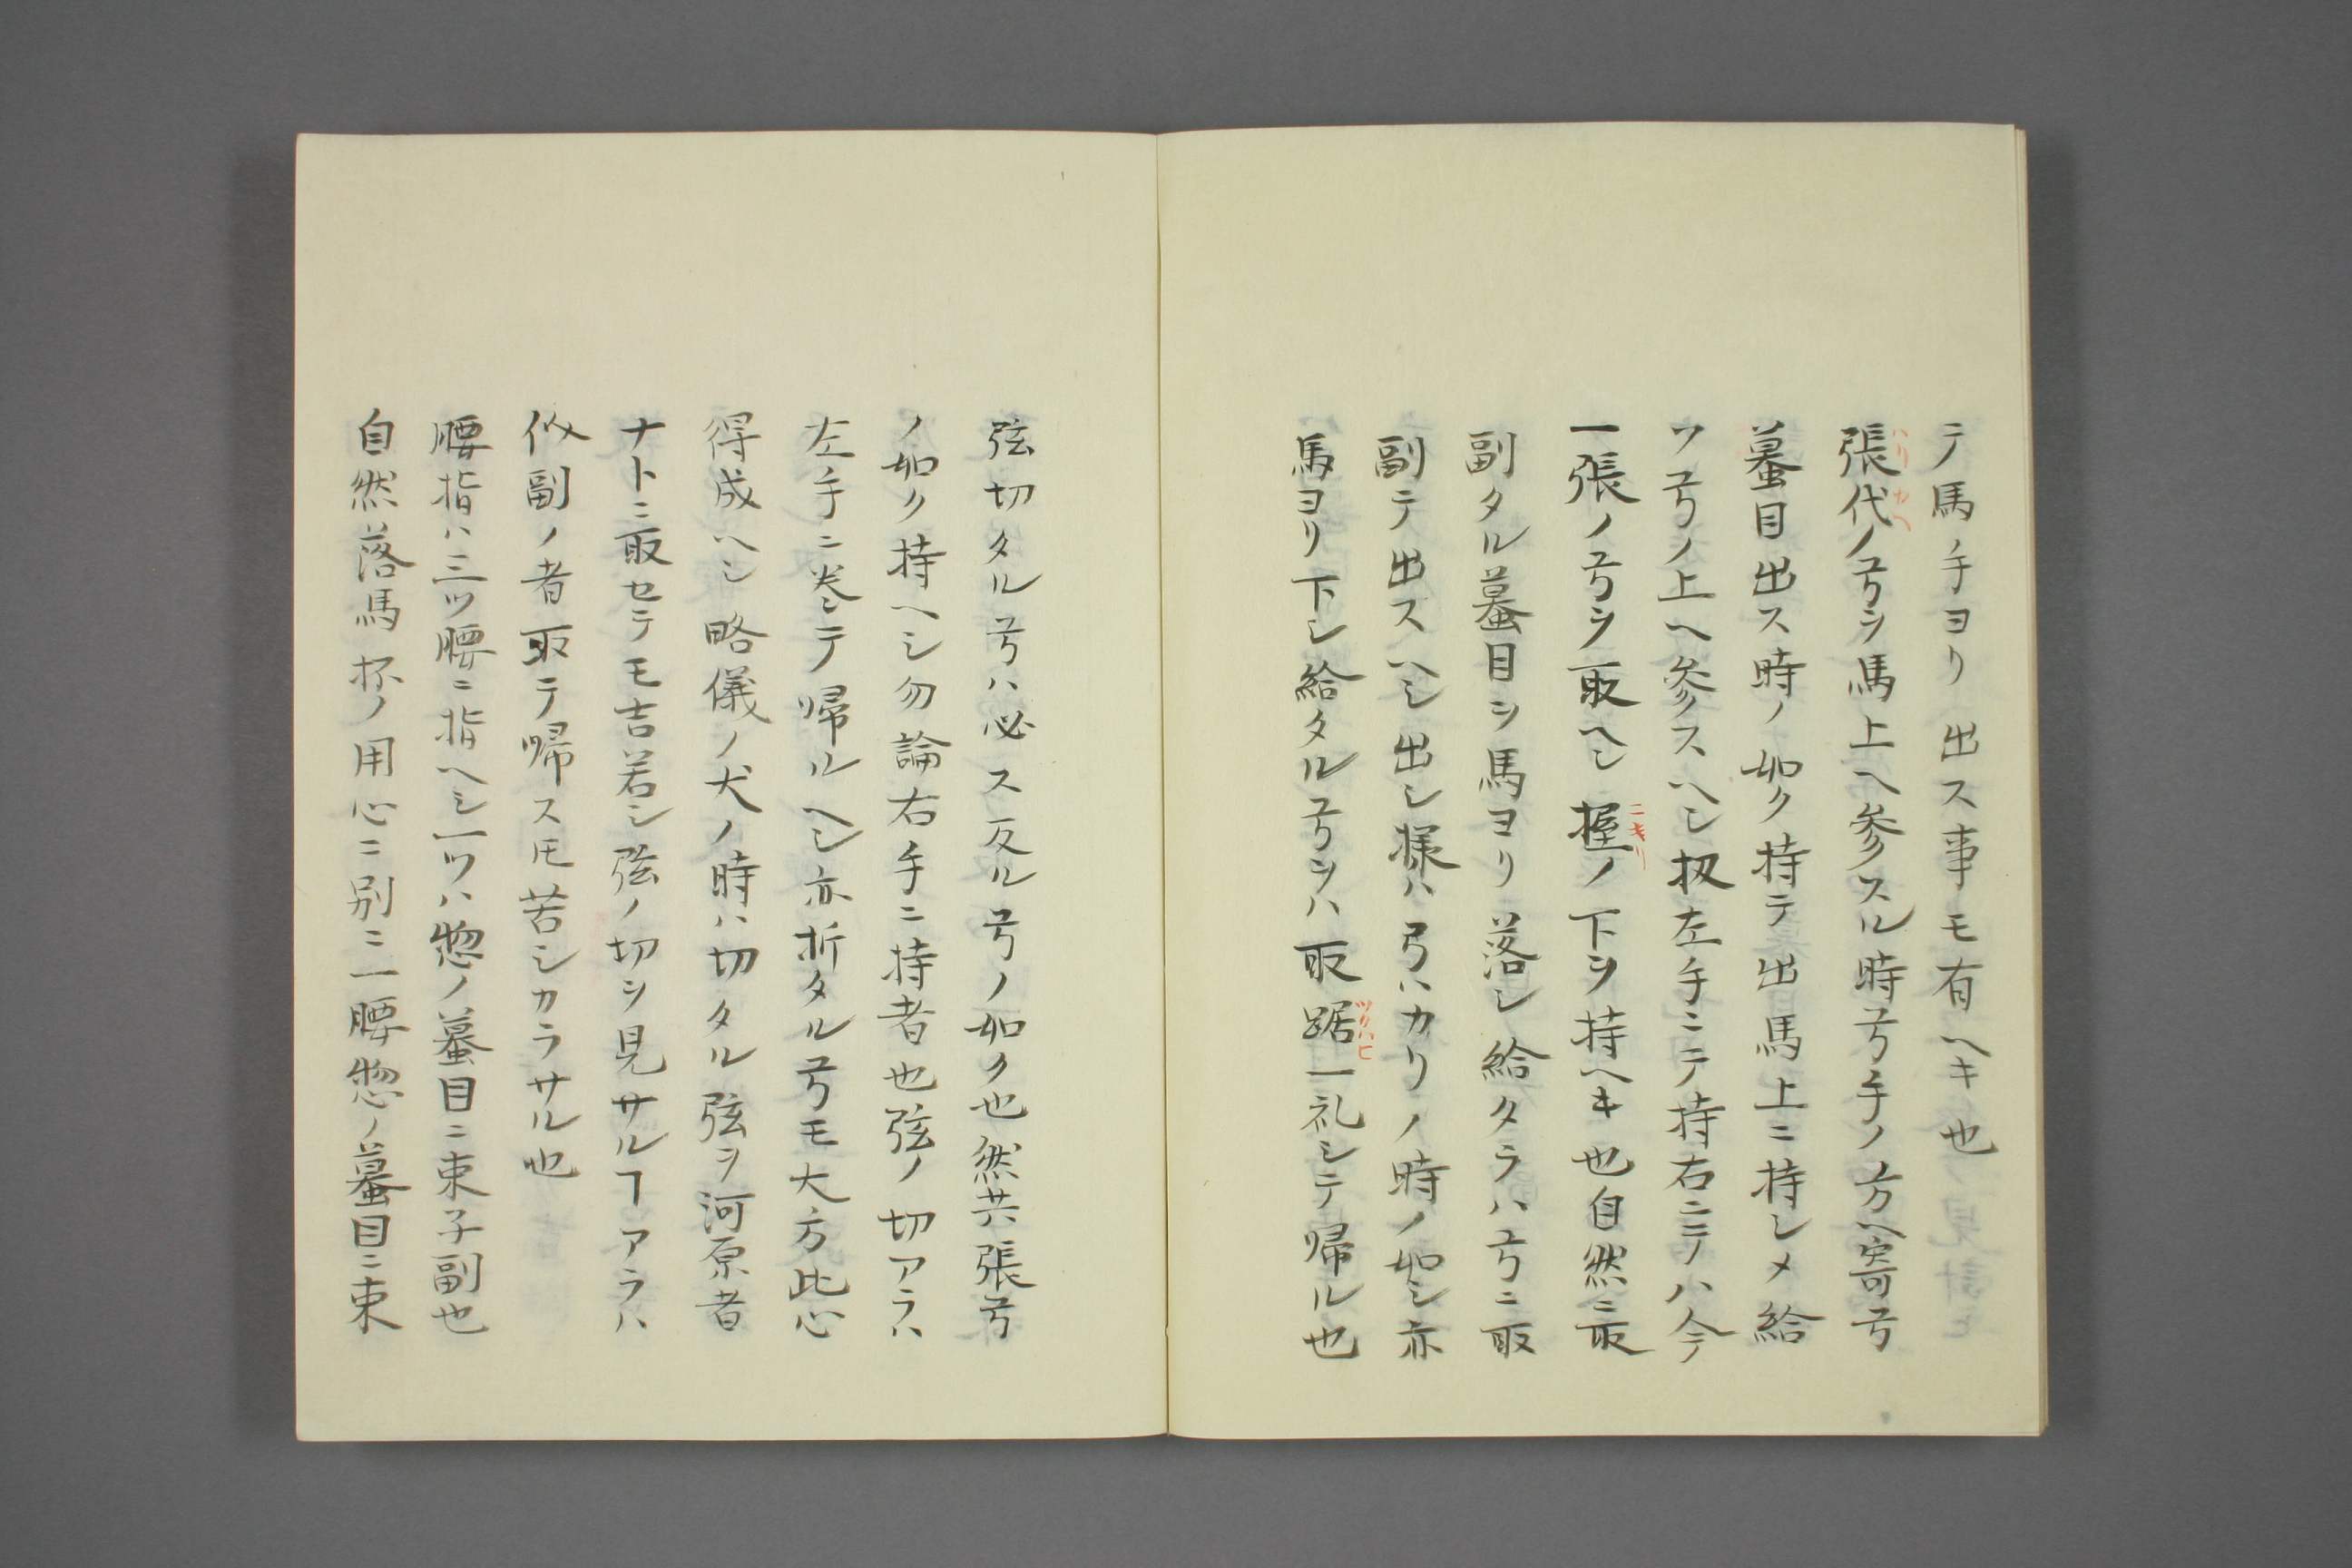 テ馬ノ手ヨリ出ス事モ有ヘキ也
張代ノ弓ヲ馬上ヘ参スル時弓手ノ方ヘ寄弓
ハリカヘ
蟇目出ス時ノ如ク持テ出馬上ニ持シメ給
ツ弓ノ上ヘ参スヘシ扨左手ニテ持右ニテハ今
一張ノ弓ヲ取ヘシ握ノ下ヲ持ヘキ也自然ニ取
ニキリ
副タル蟇目ヲ馬ヨリ落シ給タラハ弓ニ取
副テ出スヘシ出シ様ハ弓ハカリノ時ノ如シ亦
馬ヨリ下シ給タル弓ヲハ取踞一礼シテ帰ル也
ツクハヒ
弦切タル弓ハ必ス反ル弓ノ如ク也然共張弓
ノ如ク持ヘシ勿論右手ニ持者也弦ノ切アラハ
左手ニ巻シテ帰ルヘシ亦折タル弓モ大方此心
得成ヘシ略儀ノ犬ノ時ハ切タル弦ヲ河原者
ナトニ取セテモ吉若シ弦ノ切ヲ見サルヿアラハ
似副ノ者取テ帰スモ苦シカラサル也
腰指ハ三ツ腰ニ指ヘシ一ツハ惣ノ蟇目ニ束子副也
自然落馬抔ノ用心ニ別ニ一腰惣ノ蟇目ニ束